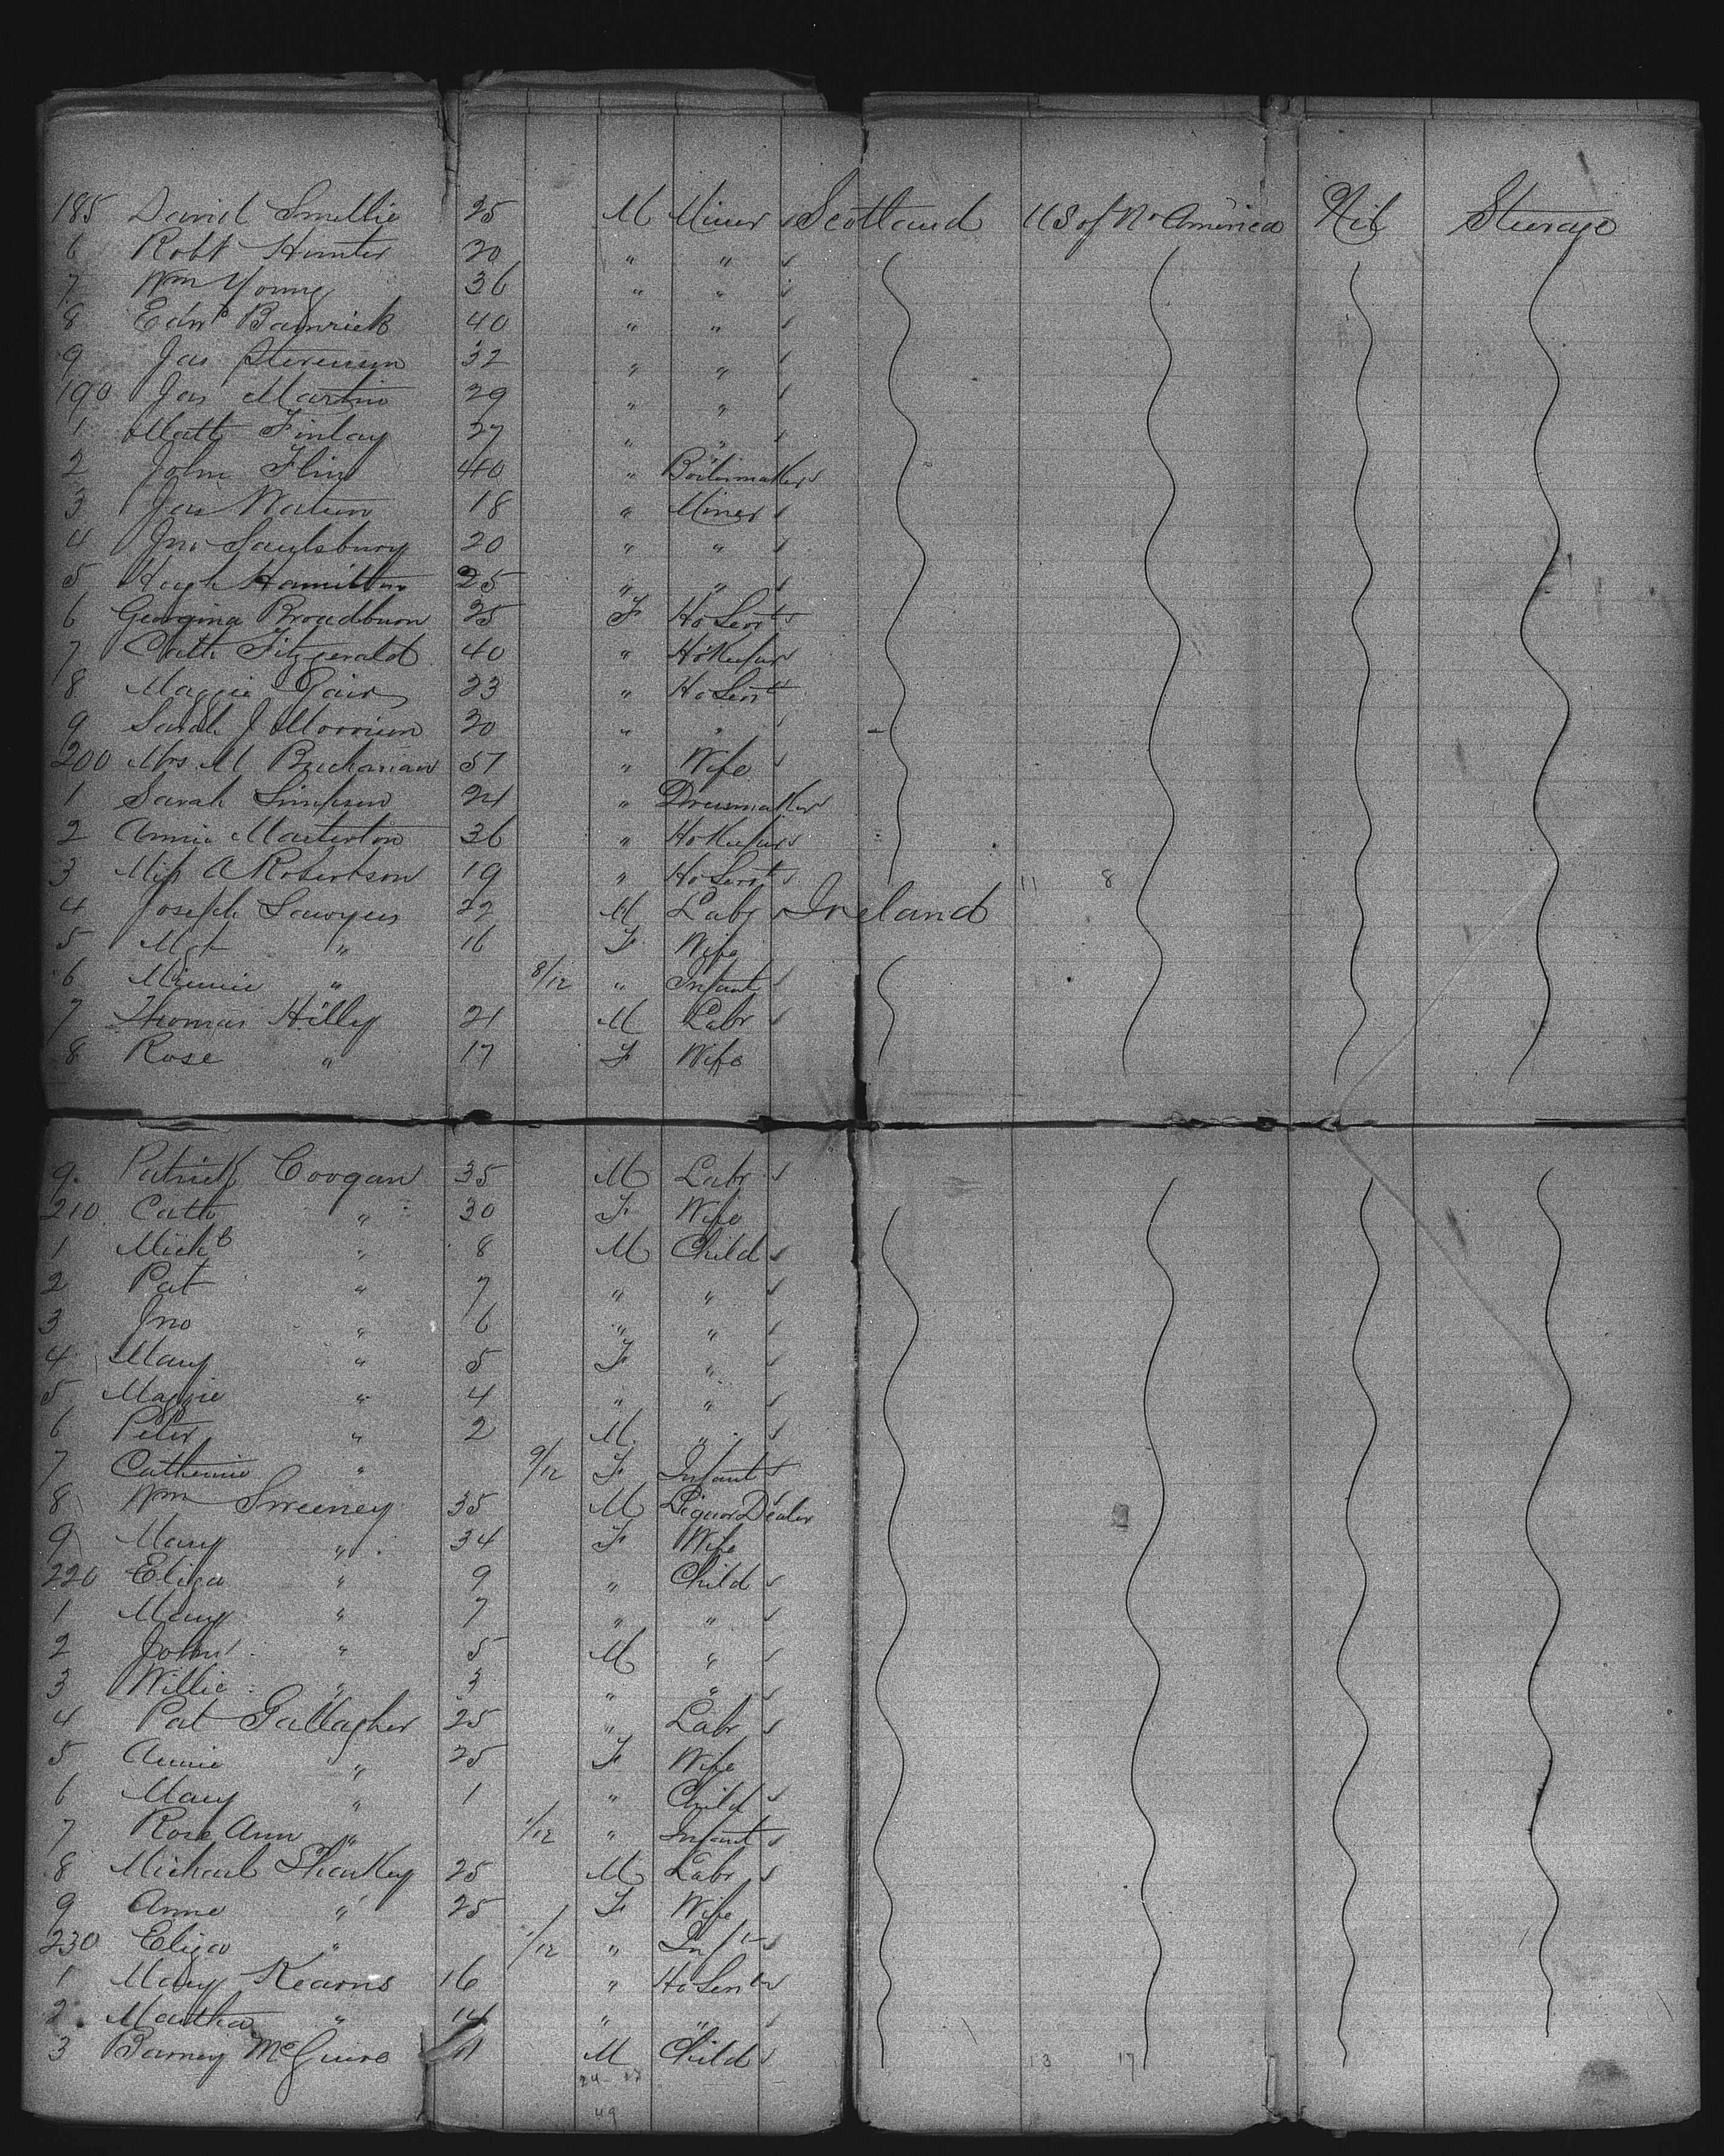 185 David Smellie 25 M Miner Scotland US of No America Nil Steerage
6 Robt Hunter 20 " "
7 Wm Young 36 " "
8 Edwd Bamrick 40 " "
9 Jas Stevenson 32 " "
190 Jas Martin 29 " "
1 Matt Finlay 27 " "
2 John Flin 40 " Boilermaker
3 Jas Watson 18 " Miner
4 Jno Saulsbury 20 " "
5 Hugh Hamilton 25 " "
6 Georgina Broadburn 25 F Ho Servt
7 Cath Fitzgerald 40 " Ho Keeper
8 Maggie Gair 23 " Ho Servt
9 Sarah J Morrison 20 " "
200 Mrs M Buchanan 57 " Wife
1 Sarah Simpson 24 " Dressmaker
2 Annie Masterton 36 " Ho Keeper
3 Miss A Robertson 19 " Ho Servt 11 8
4 Joseph Sawyers 22 M Labr Ireland
5 Mgt " 16 F Wife
6 Minnie " 8/12 " Infant
7 Thomas Hilly 21 M Labr
8 Rose " 17 F Wife
9 Patrick Coogan 35 M Labr
210 Cath " 30 F Wife
1 Michl " 8 M Child
2 Pat " 7 " "
3 Jno " 6 " "
4 Mary " 5 F "
5 Maggie " 4 " "
6 Peter " 2 M "
7 Catherine " 9/12 F Infant
8 Wm Sweeney 35 M Liquor Dealer
9 Mary " 34 F Wife
220 Eliza " 9 " Child
1 Mary " 7 " "
2 John " 5 M "
3 Willie " 3 " "
4 Pat Gallagher 25 " Labr
5 Annie " 25 F Wife
6 Mary " 1 " Child
7 Rose Ann " 1/12 " Infant
8 Michael Sharkey 25 M Labr
9 Anne " 25 F Wife
230 Eliza " 1/12 " Inft
1 Mary Kearns 16 " Ho Servt
2 Martha " 14 " "
3 Barney McGuire 11 M Child 13 17
49